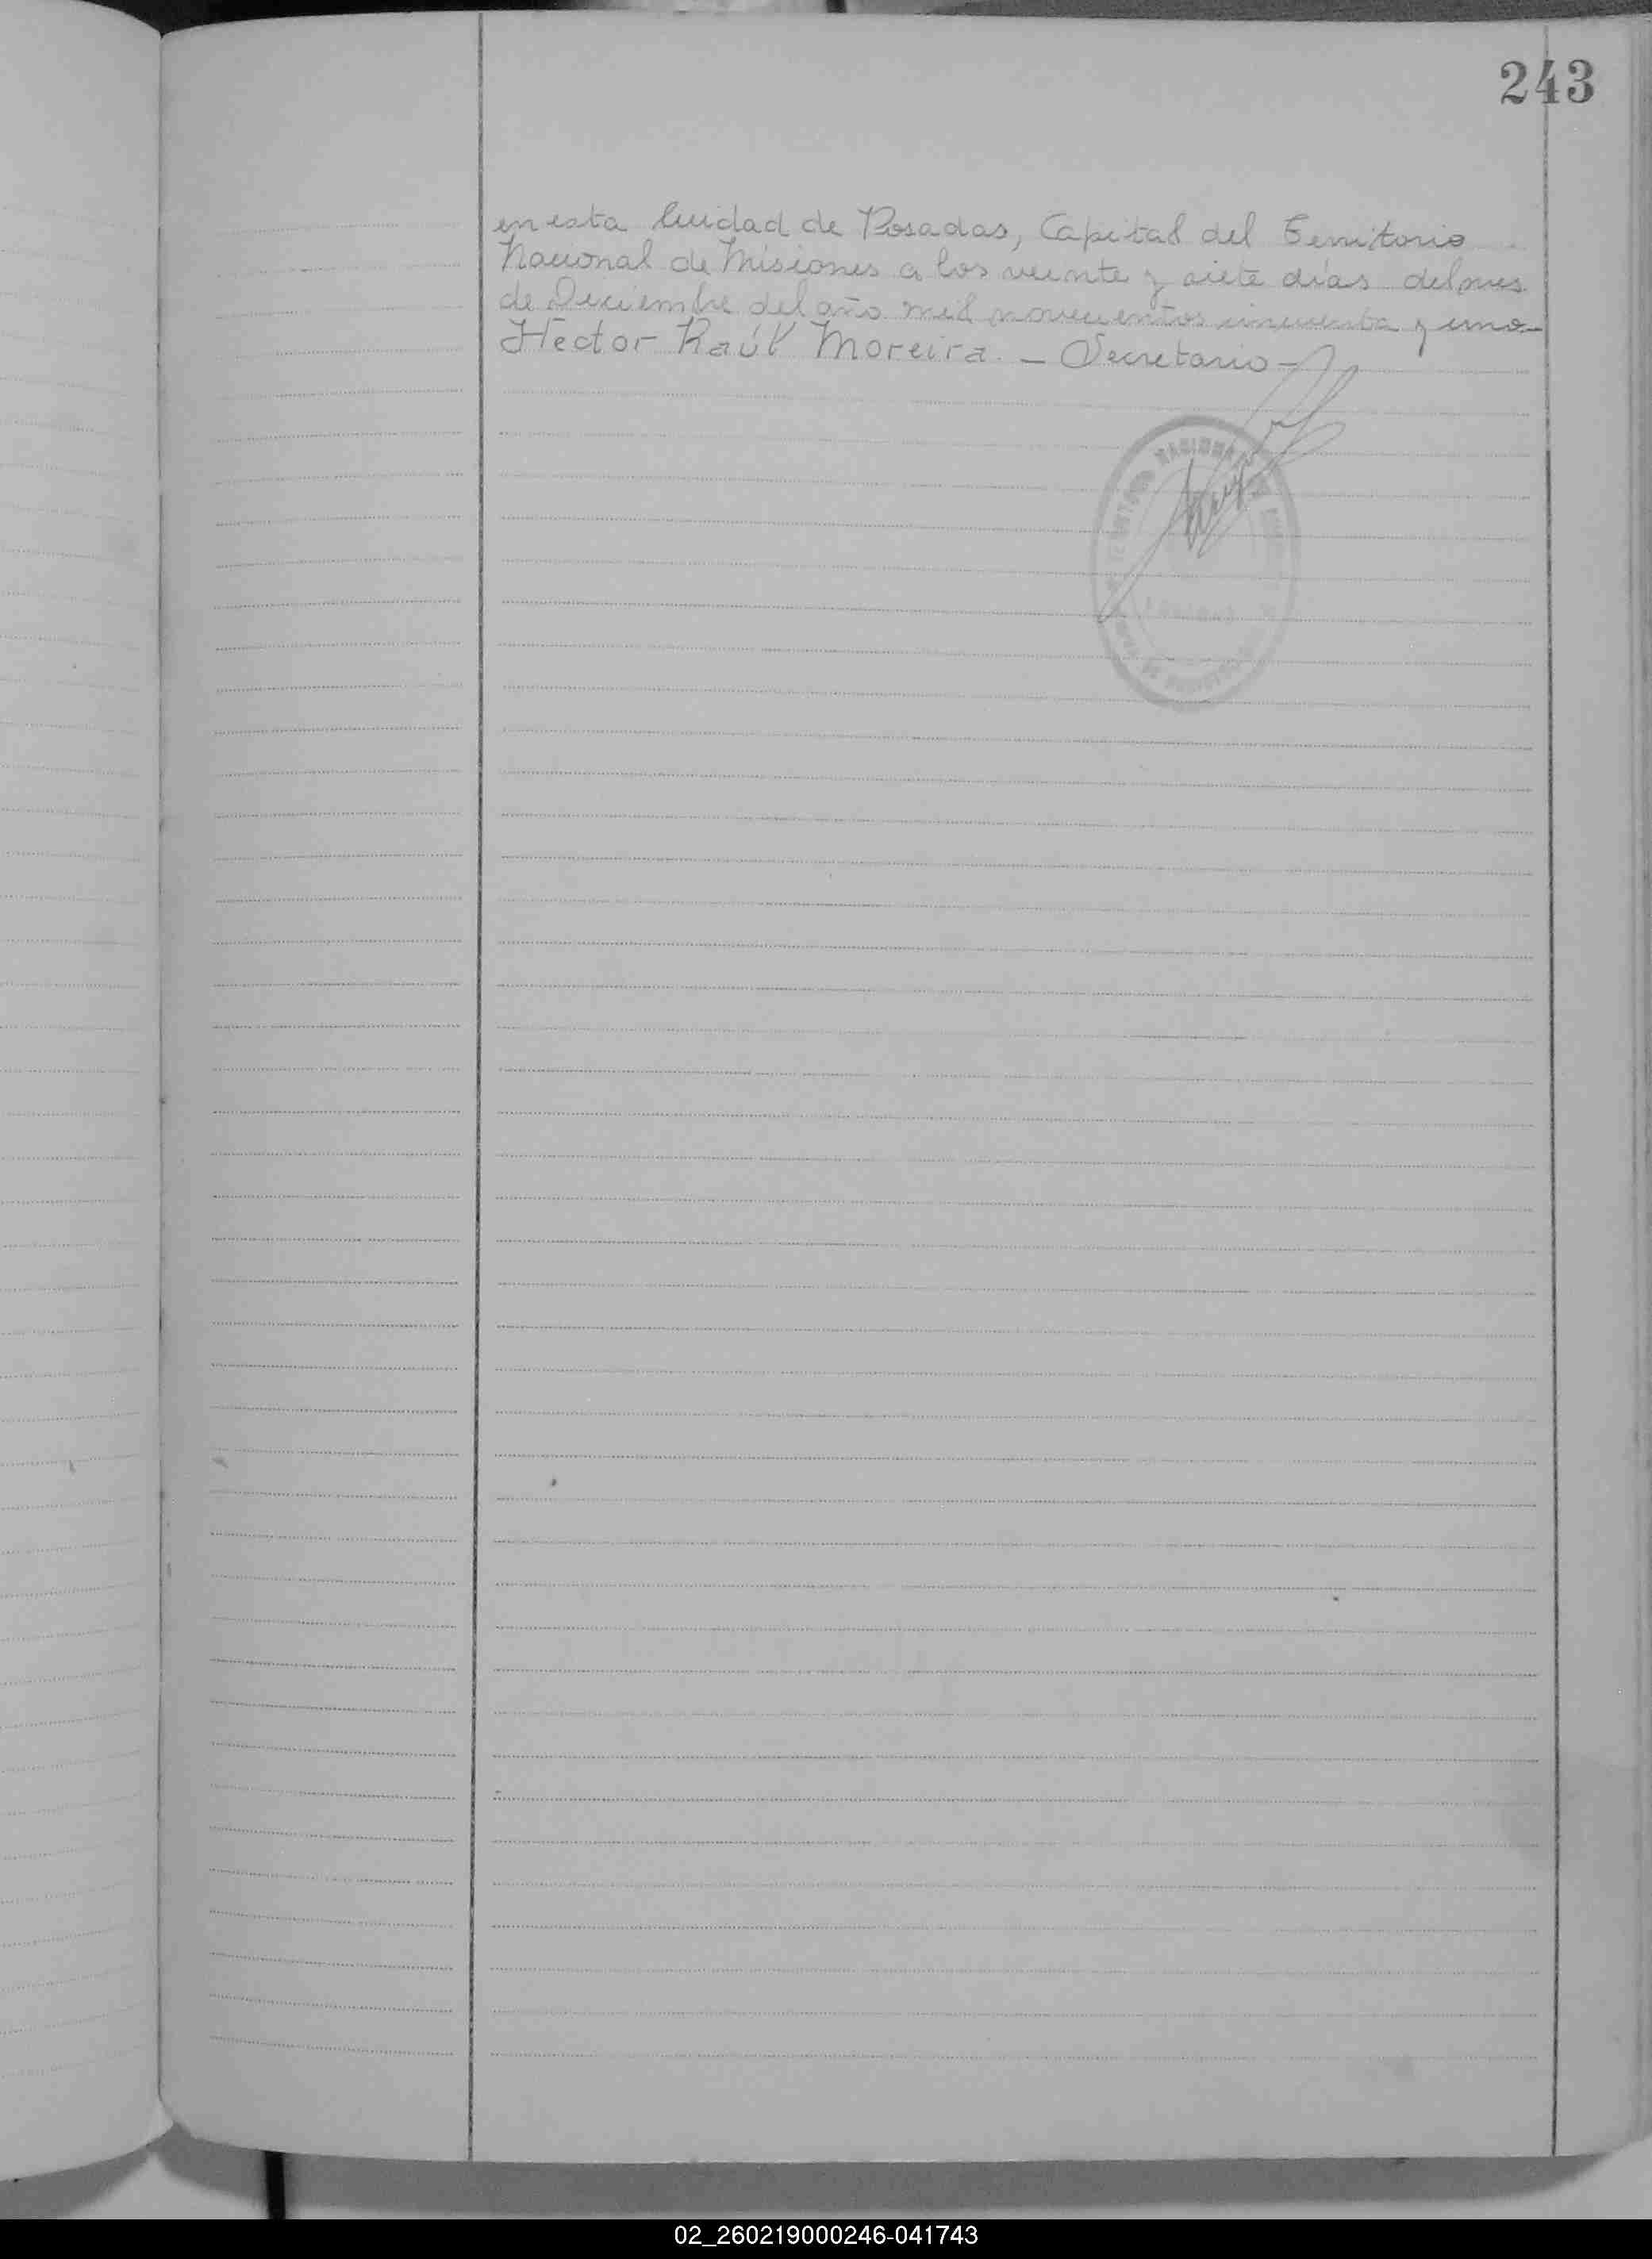 243
en esta Ciudad de Posadas, Capital del Territorio
Nacional de Misiones a los veinte y siete días del mes
de Diciembre del año mil novecientos cincuenta y uno-
Héctor Raúl Moreira. - Secretario-
NACIONAL
POSADAS
02_260219000246-041743